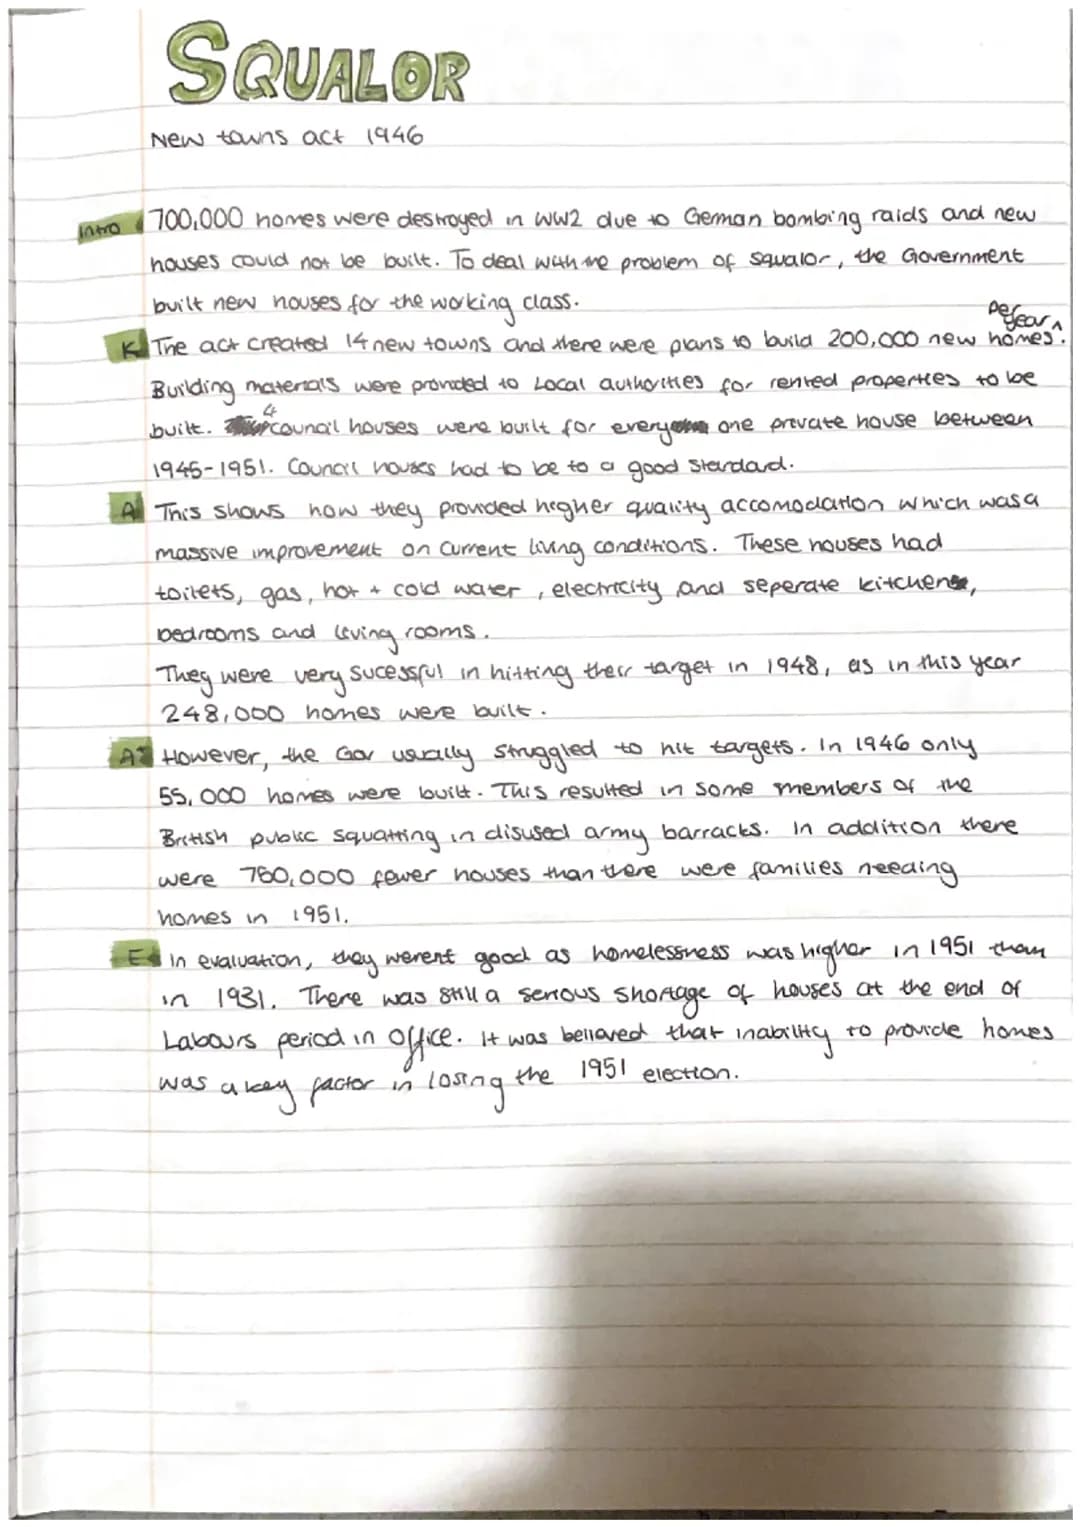 SQUALOR
New towns act 1946
Intro 700,000 homes were destroyed in WW2 due to German bombing raids and new
houses could not be built. To deal with the problem of squalor, the Government
built new houses for the working class.
per year
K The act created 14 new towns and there were plans to build 200,000 new homes^.
Building materials were provided to Local authorities for rented properties to be
built. 4 council houses were built for every one private house between
1945-1951. Council houses had to be to a good standard.
A This shows how they provided higher quality accomodation which was a
massive improvement on current living conditions. These houses had
toilets, gas, hot + cold water, electricity and seperate kitchens,
bedrooms and living rooms.
They were very sucessful in hitting their target in 1948, as in this year
248,000 homes were built.
A+ However, the Gov usually struggled to hit targets. In 1946 only
55,000 homes were built. This resulted in some members of the
British public squatting in disused army barracks. In addition there
were 750,000 fewer houses than there were families needing
homes in 1951.
E In evaluation, they werent good as homelessness was higher in 1951 than
in 1931. There was still a serious shortage of houses at the end of
Labours period in office. It was belleved that inability to provide homes
was a key factor in losing the 1951 election.